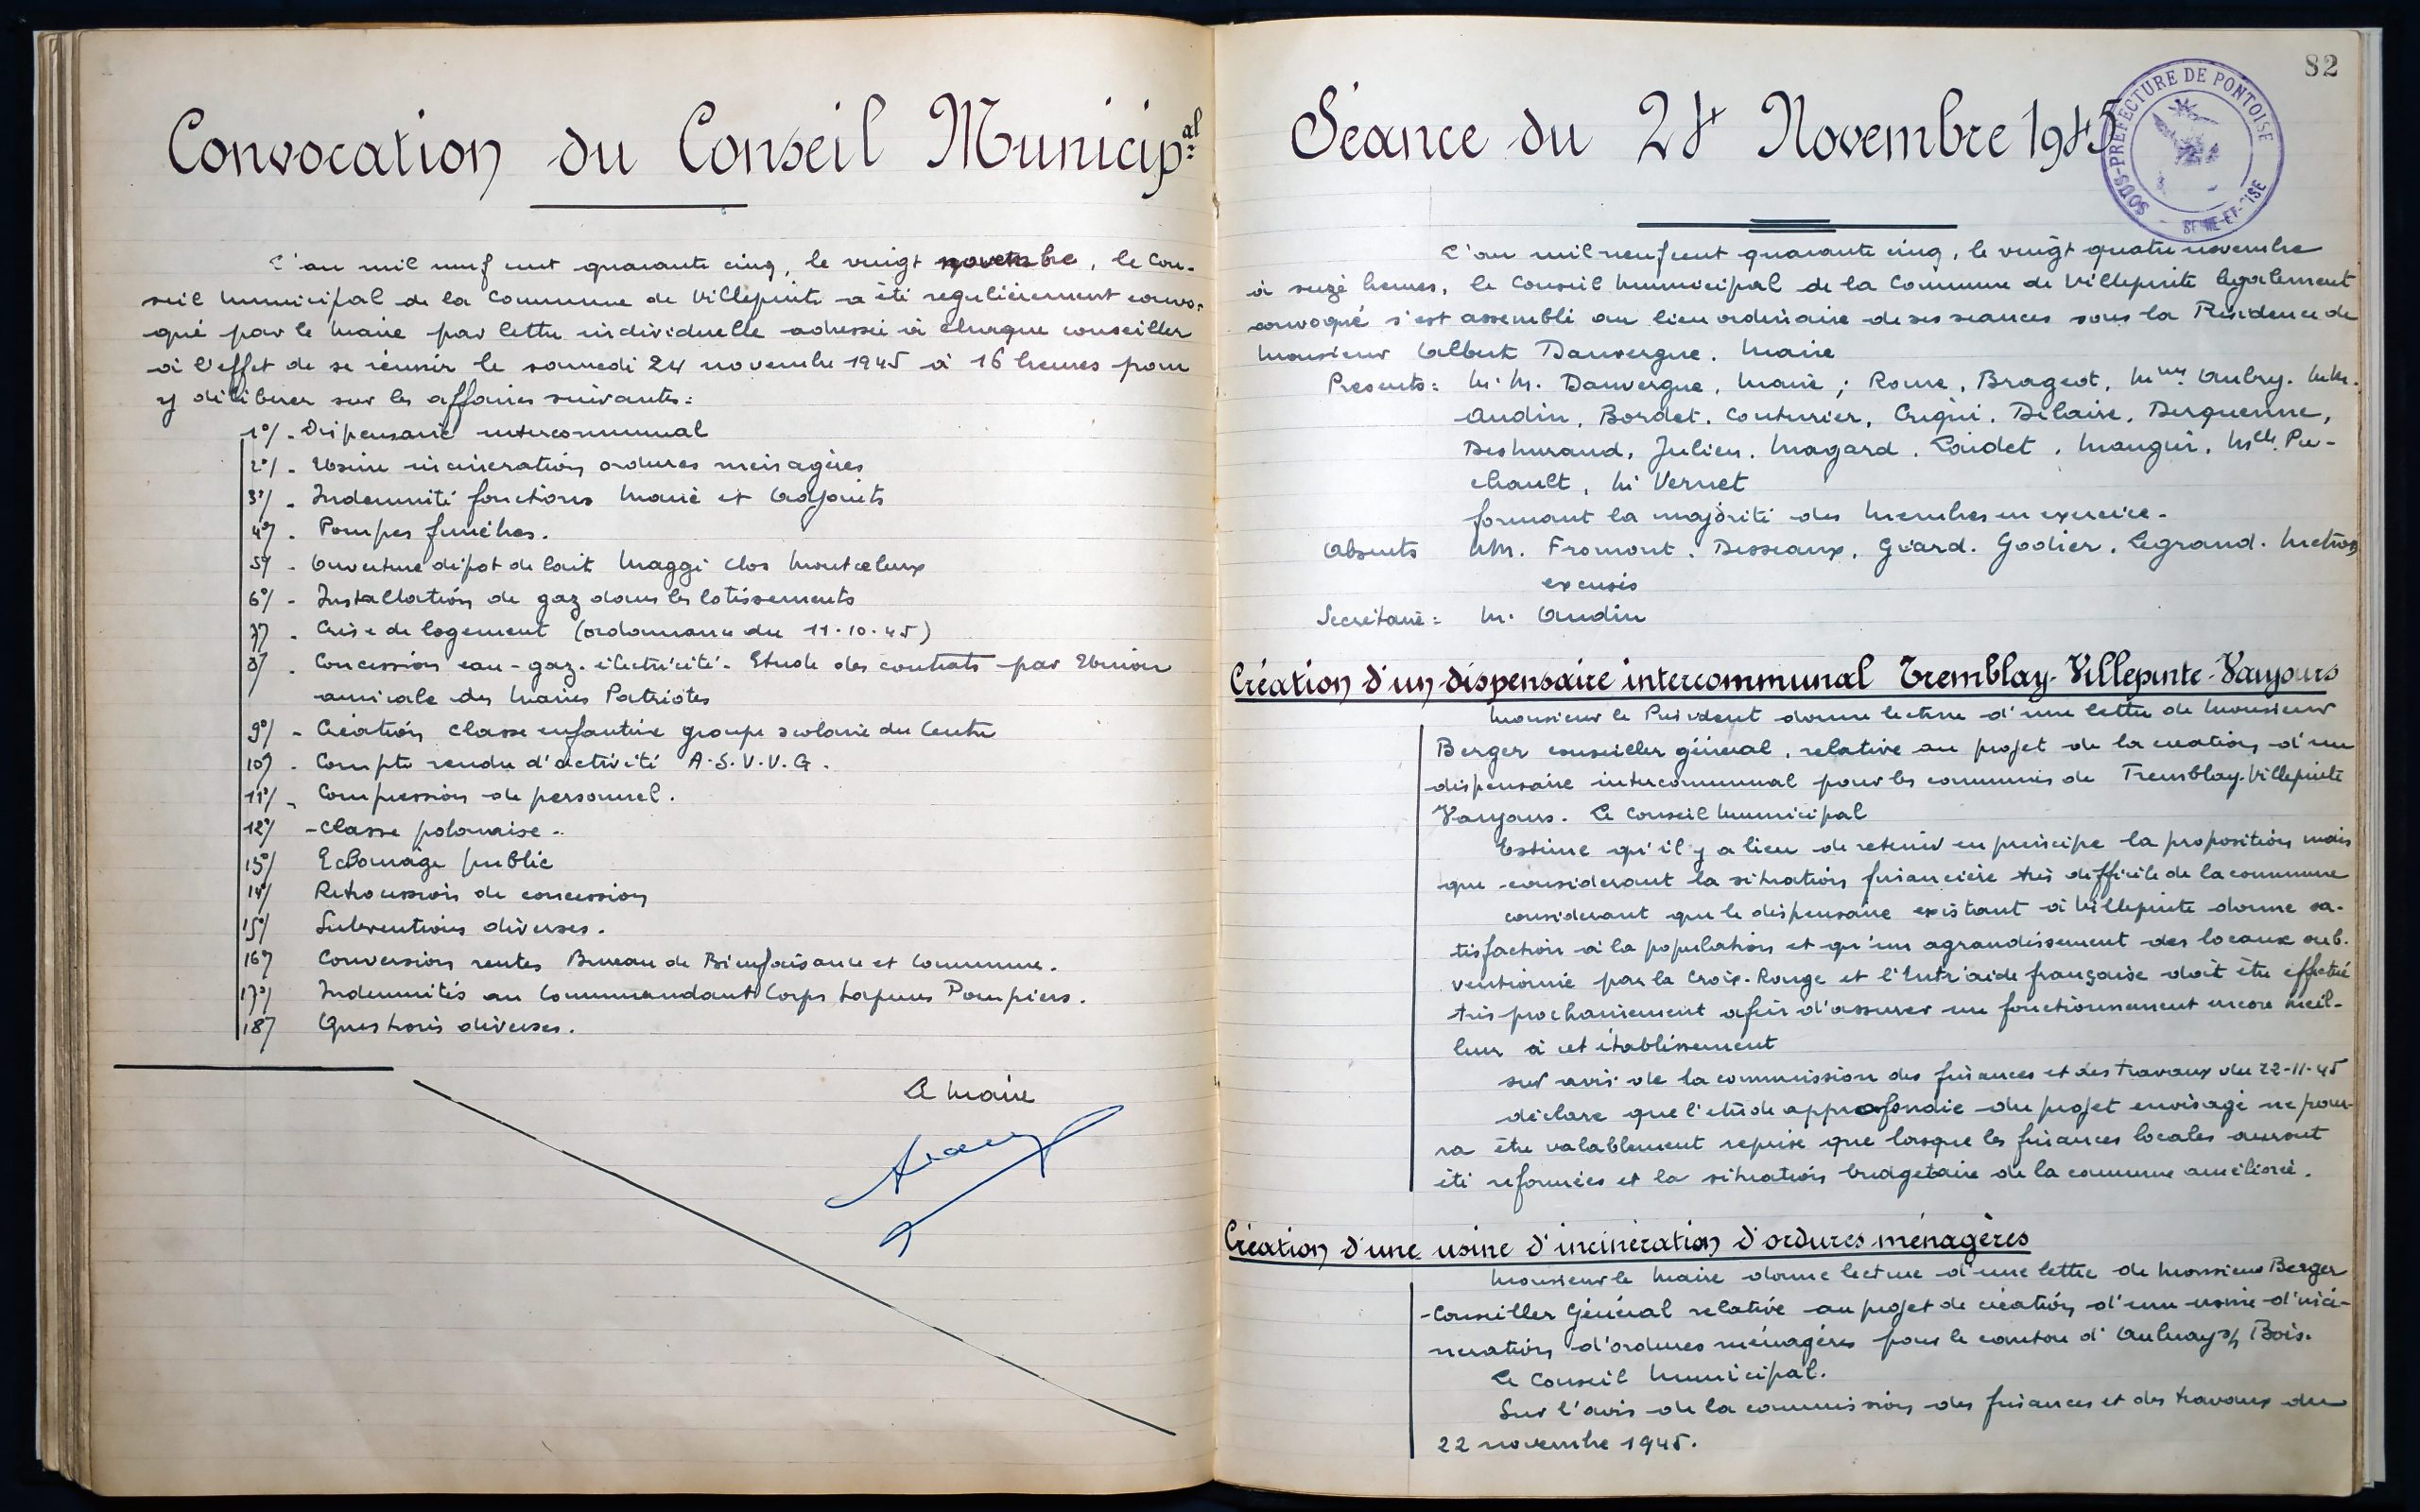 Convocation du Conseil Municipal
L'an mil neuf cent quarante cinq, le vingt novembre, le Con-
seil Municipal de la Commune de Villepinte a été regulièrement convo-
qué par le Maire par lettre individuelle adressée à chaque conseiller
à l'effet de se réunir le samedi 24 novembre 1945 à 16 heures pour
y délibérer sur les affaires suivantes:
1°/ - Dispensaire intercommunal
2°/ - Usine incinération ordures ménagères
3°/ - Indemnité fonctions Maire et Adjoints
4°/ - Pompes funèbres.
5°/ - Ouverture dépot de lait Maggi clos Montceleux
6°/ - Installation de gaz dans les lotissements
7°/ - Crise de logement (ordonnance du 11.10.45)
8°/ - Concession eau - gaz - électricité - Etude des contrats par Union
amicale des Maires Patriotes
9°/ - Création classe enfantine groupe scolaire du Centre
10°/ - Compte rendu d'activité A.S.V.V.G.
11°/ - Compression de personnel.
12°/ - Classe polonaise -
13°/ Eclairage public
14°/ Retrocession de concession
15°/ Subventions diverses.
16°/ Conversion rentes Bureau de Bienfaisance et Commune.
17°/ Indemnités au Commandant Corps Sapeurs Pompiers.
18°/ Questions diverses.
Le Maire
82
Séance du 24 Novembre 1945
SOUS-PRÉFECTURE DE PONTOISE
SEINE-ET-OISE
L'an mil neuf cent quarante cinq, le vingt quatre novembre
à seize heures, le Conseil Municipal de la Commune de Villepinte légalement
convoqué s'est assemblé au lieu ordinaire de ses séances sous la Présidence de
Monsieur Albert Dauvergne, Maire
Présents: M.M. Dauvergne, Maire; Rome, Brageot, Mme Aubry. MM.
Audin, Bordet, Couturier, Crequi, Delaire, Derquenne,
Deshuraud, Julien, Magard, Loidet, Mangin, Mlle Pru-
chault, M. Vernet
formant la majorité des membres en exercice.
Absents MM. Fromont, Desseaux, Giard, Godier, Legrand.
excusés
Secrétaire: M. Audin
Création d'un dispensaire intercommunal Tremblay-Villepinte-Vaujours
Monsieur le Président donne lecture d'une lettre de Monsieur
Berger conseiller général, relative au projet de la création d'un
dispensaire intercommunal pour les communes de Tremblay-Villepinte
Vaujours. Le Conseil Municipal
Estime qu'il y a lieu de retenir en principe la proposition mais
que considerant la situation financière très difficile de la commune
considerant que le dispensaire existant à Villepinte donne sa-
tisfaction à la population et qu'un agrandissement des locaux sub-
ventionné par la Croix-Rouge et l'Entr'aide française doit être effectué
très prochainement afin d'assurer un fonctionnement encore meil-
leur à cet établissement
sur avis de la commission des finances et des travaux du 22-11-45
déclare que l'étude approfondie du projet envisagé ne pour-
ra être valablement reprise que lorsque les finances locales auront
été reformées et la situation budgetaire de la commune améliorée.
Création d'une usine d'incinération d'ordures ménagères
Monsieur le Maire donne lecture d'une lettre de Monsieur Berger
Conseiller Général relative au projet de création d'une usine d'inci-
nération d'ordures ménagères pour le canton d'Aulnay s/ Bois.
Le Conseil Municipal.
Sur l'avis de la commission des finances et des travaux du
22 novembre 1945.